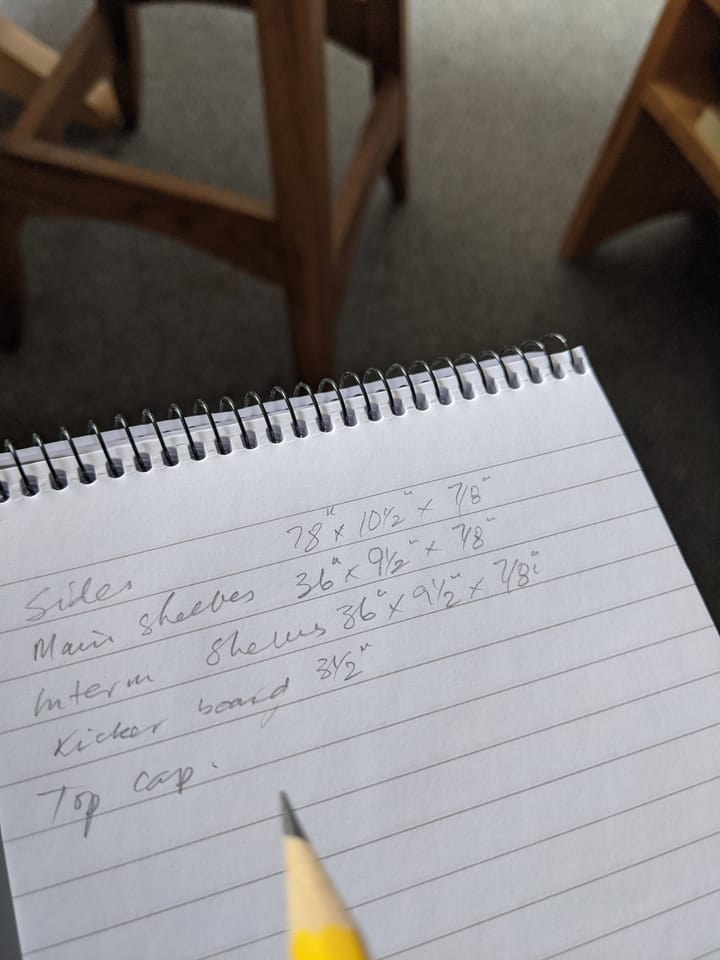 Sides 78" x 10 1/2" x 7/8"
Main shelves 36" x 9 1/2" x 7/8"
Interm shelves 36" x 9 1/2" x 7/8"
Kicker board 3 1/2"
Top cap.